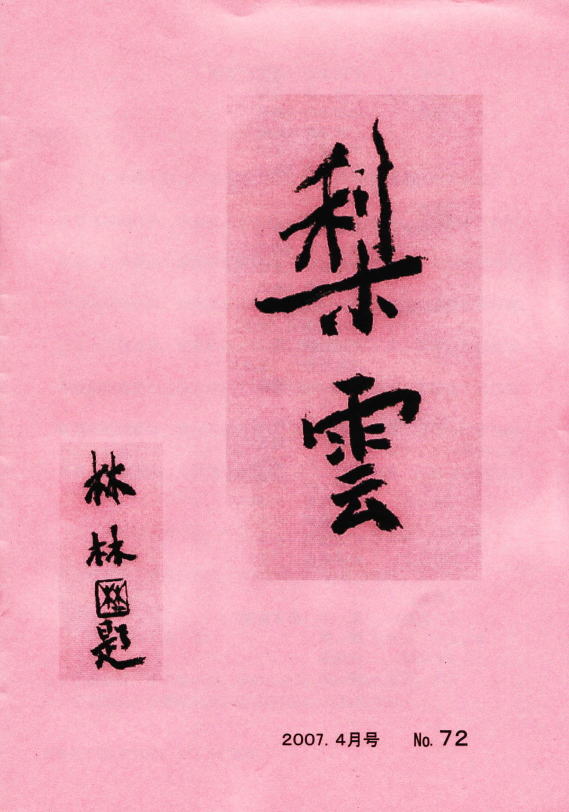 梨雲
林林題
2007. 4月号 No. 72